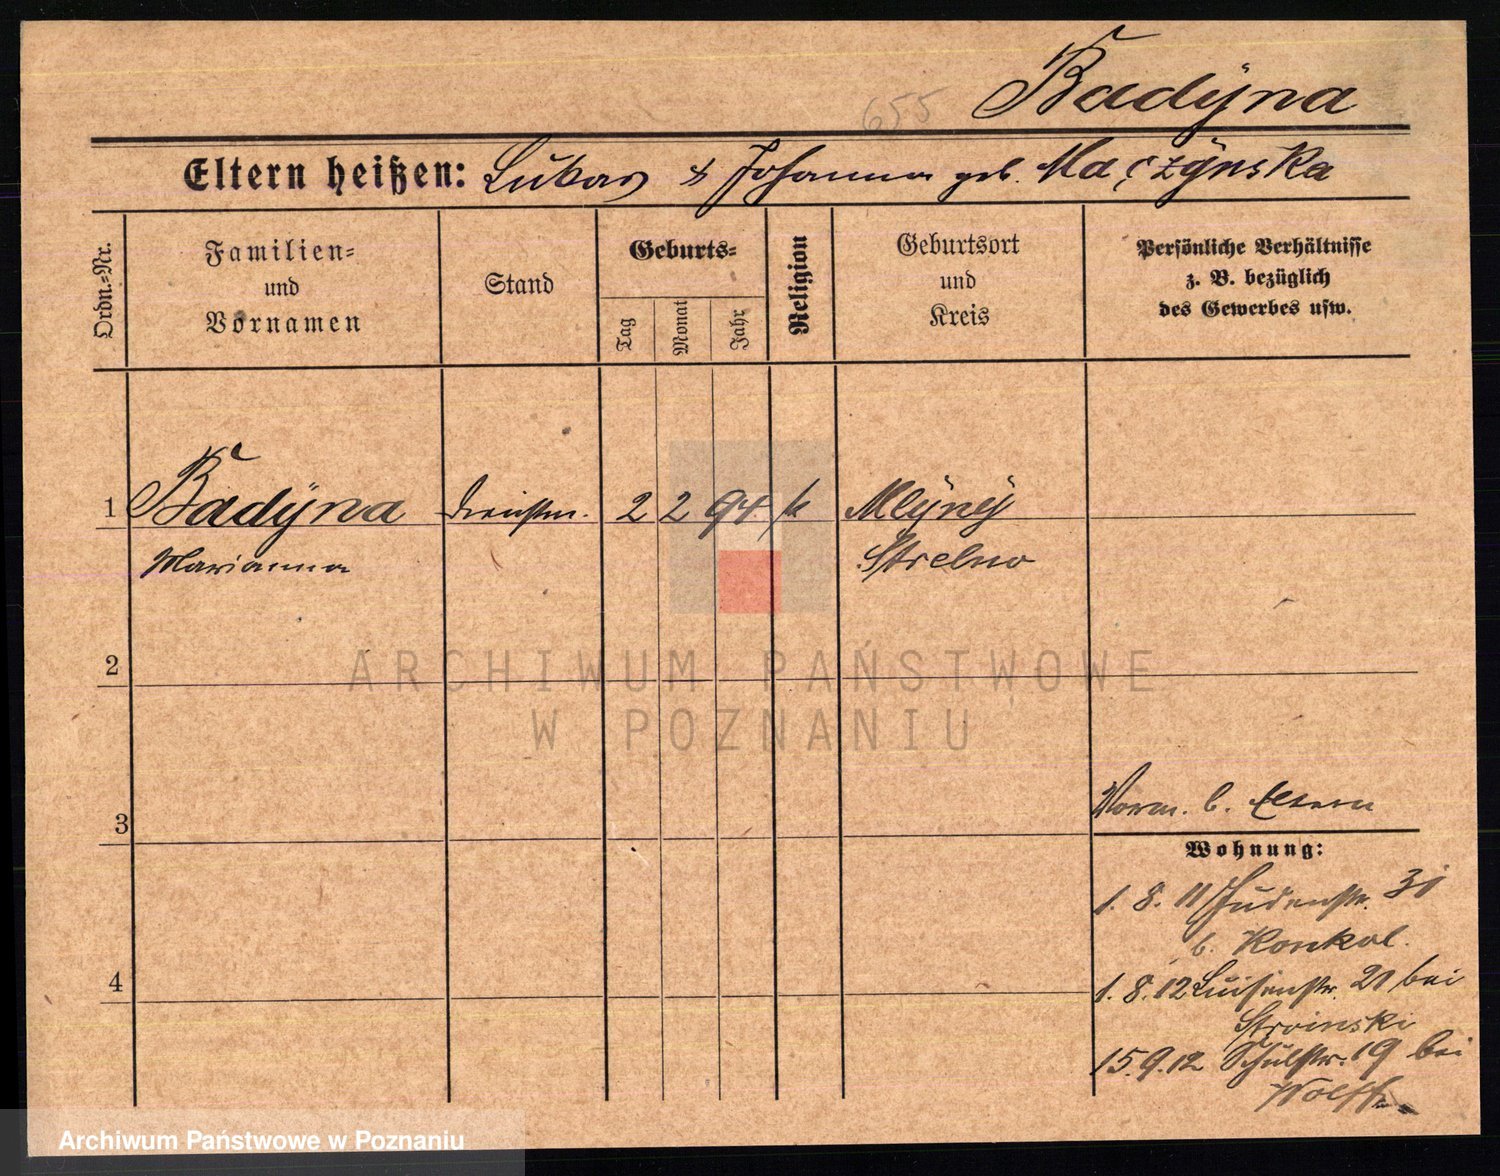 655 Badÿna
Eltern heißen: Lukas & Johanna geb. Maczÿnska
Ordn.-Nr.
Familien-
und
Vornamen
Stand
Geburts-
Tag
Monat
Jahr
Religion
Geburtsort
und
Kreis
Persönliche Verhältnisse
z. B. bezüglich
des Gewerbes usw.
1 Badÿna Dienstm. 2 2 94 k Mlÿnÿ
Marianna Strelno
2
ARCHIWUM PAŃSTWOWE
W POZNANIU
Vorm. b. Eltern
3
Wohnung:
1. 8. 11 Judenstr. 31
b. Konkol.
4
1. 8. 12 Luisenstr. 21 bei
Stroinski
15. 9. 12 Schulstr. 19 bei
Wolff
Archiwum Państwowe w Poznaniu